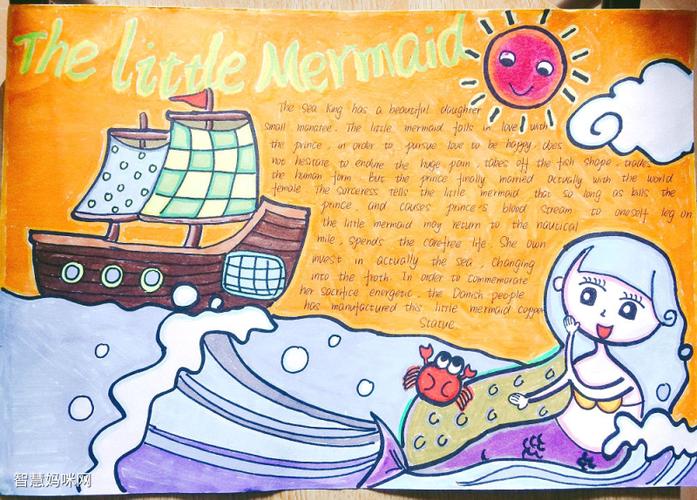 The Little Mermaid
The Sea King has a beautiful daughter
small manatee. The little mermaid falls in love with
the prince, in order to pursue love to be happy, does
not hesitate to endure the huge pain, takes off the fish shape, trades
the human form. But the prince finally married actually with the world
female. The sorceress tells the little mermaid that so long as kills the
prince and causes prince's blood stream to oneself leg on
the little mermaid may return to the nautical
mile, spends the carefree life. She own
invest in actually the sea, changing
into the froth. In order to commemorate
her sacrifice energetic, the Danish people
has manufactured this little mermaid copper
Statue
智慧妈咪网